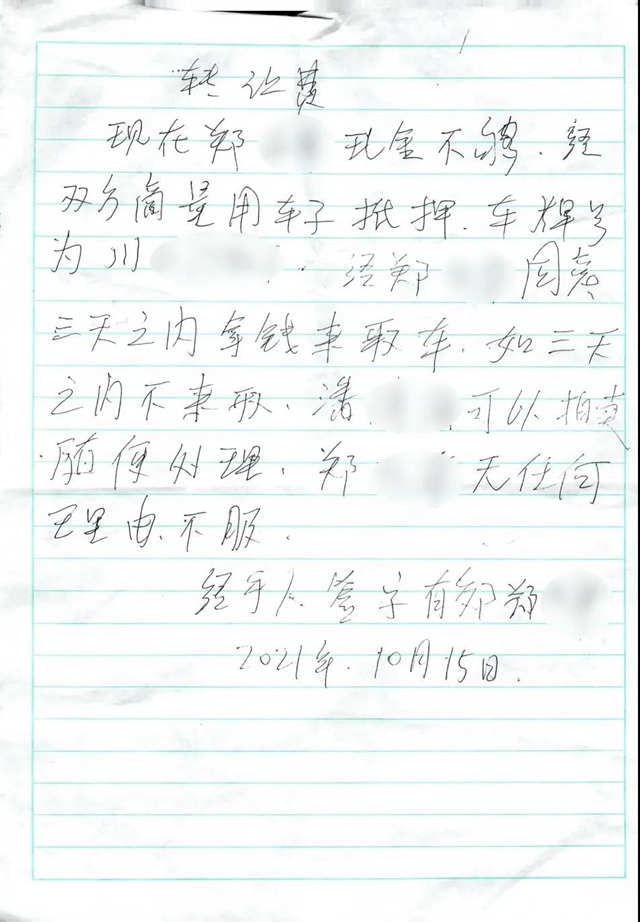 转让费
现在郑 现金不够.经
双方商量用车子抵押.车牌号
为川 经郑 同意
三天之内拿钱来取车.如三天
之内不来取、潘 可以拍卖
随便处理、郑 无任何
理由.不服.
经手人签字有郑郑
2021年.10月15日.